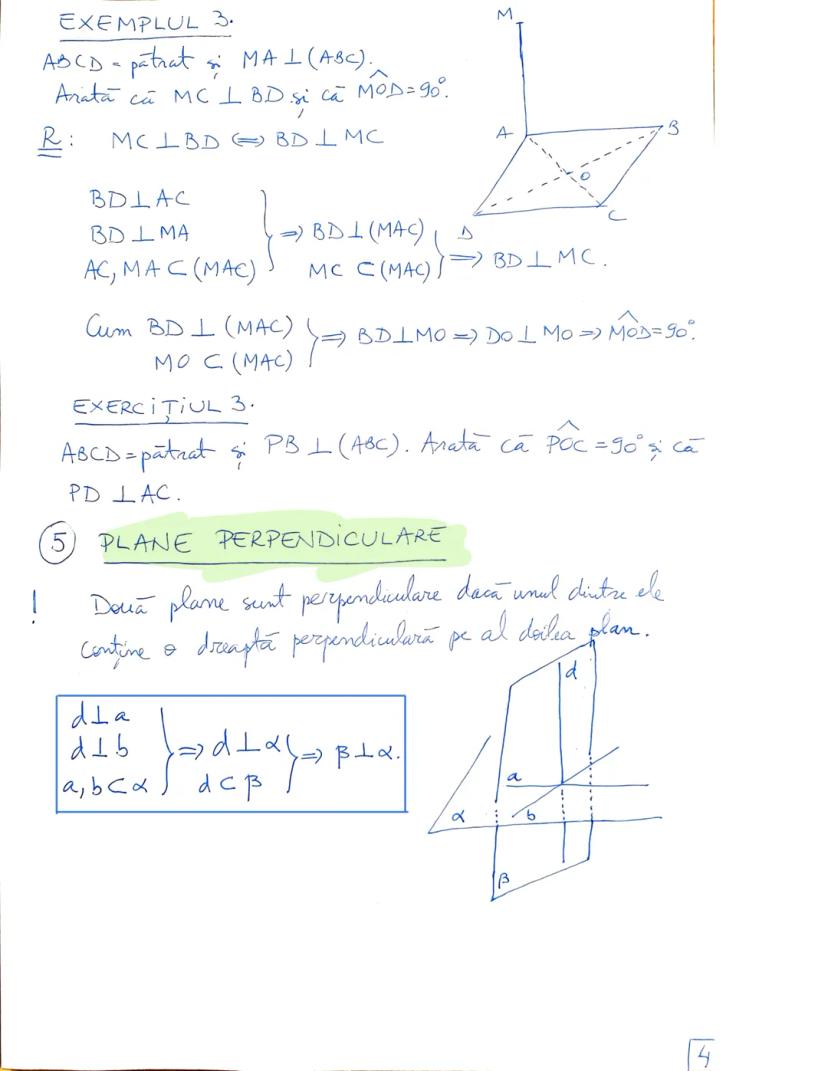 EXEMPLUL 3.
ABCD = pătrat și MA ⊥ (ABC).
Arată că MC ⊥ BD și că M̂OD = 90°.
R: MC ⊥ BD ⇔ BD ⊥ MC
M
A
B
O
D
C
BD ⊥ AC
BD ⊥ MA
AC, MA ⊂ (MAC)
⇒ BD ⊥ (MAC)
MC ⊂ (MAC)
⇒ BD ⊥ MC.
Cum BD ⊥ (MAC)
MO ⊂ (MAC)
⇒ BD ⊥ MO ⇒ DO ⊥ MO ⇒ M̂OD = 90°.
EXERCIȚIUL 3.
ABCD = pătrat și PB ⊥ (ABC). Arată că P̂OC = 90° și că
PD ⊥ AC.
5 PLANE PERPENDICULARE
! Două plane sunt perpendiculare dacă unul dintre ele
conține o dreaptă perpendiculară pe al doilea plan.
d ⊥ a
d ⊥ b
a, b ⊂ α
⇒ d ⊥ α
d ⊂ β
⇒ β ⊥ α.
d
a
α
b
β
4